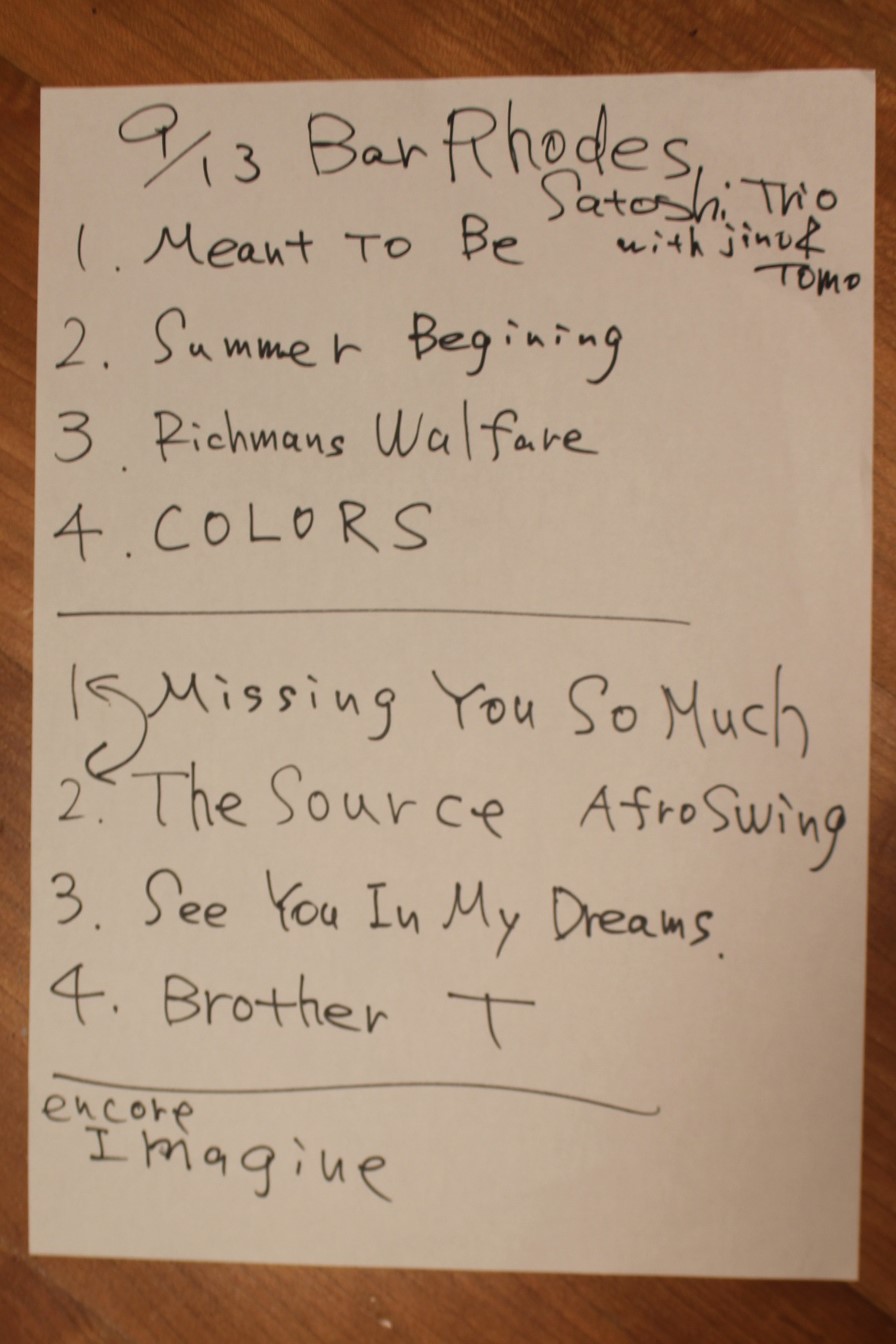 9/13 Bar Rhodes
Satoshi Trio
with jino &
Tomo
1. Meant To Be
2. Summer Begining
3. Richmans Walfare
4. COLORS
1 Missing You So Much
2. The Source AfroSwing
3. See You In My Dreams.
4. Brother T
encore
Imagine